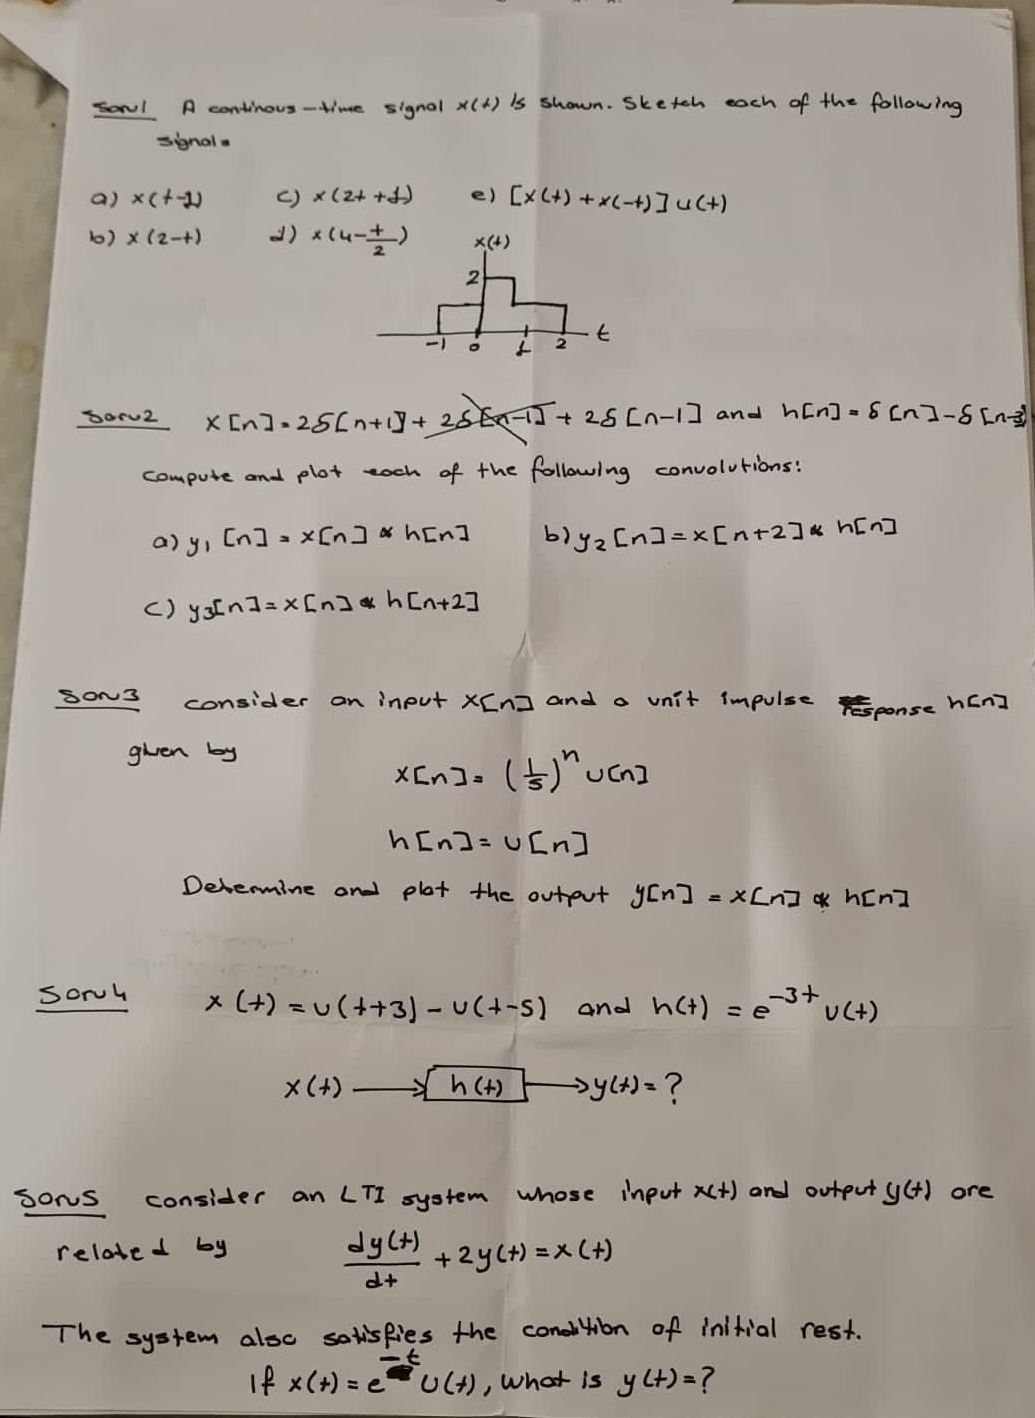 Soru1 A continous-time signal x(t) is shown. Sketch each of the following
signal.
a) x(t-1) c) x(2t+1) e) [x(t)+x(-t)]u(t)
b) x(2-t) d) x(4-t/2)
x(t)
2
-1 0 1 2 t
Soru2 x[n]=2δ[n+1]+ 2δ[n-1] + 2δ[n-1] and h[n]=δ[n]-δ[n-3]
compute and plot each of the following convolutions:
a) y₁[n]=x[n]*h[n] b) y₂[n]=x[n+2]*h[n]
c) y₃[n]=x[n]*h[n+2]
Soru3 consider an input x[n] and a unit impulse response h[n]
given by
x[n]=(1/5)ⁿu[n]
h[n]=u[n]
Determine and plot the output y[n]=x[n]*h[n]
Soru4 x(t)=u(t+3)-u(t-5) and h(t)=e^-3t u(t)
x(t) → h(t) → y(t)=?
Soru5 consider an LTI system whose input x(t) and output y(t) are
related by dy(t)/dt +2y(t)=x(t)
The system also satisfies the condition of initial rest.
If x(t)=e^-t u(t), what is y(t)=?